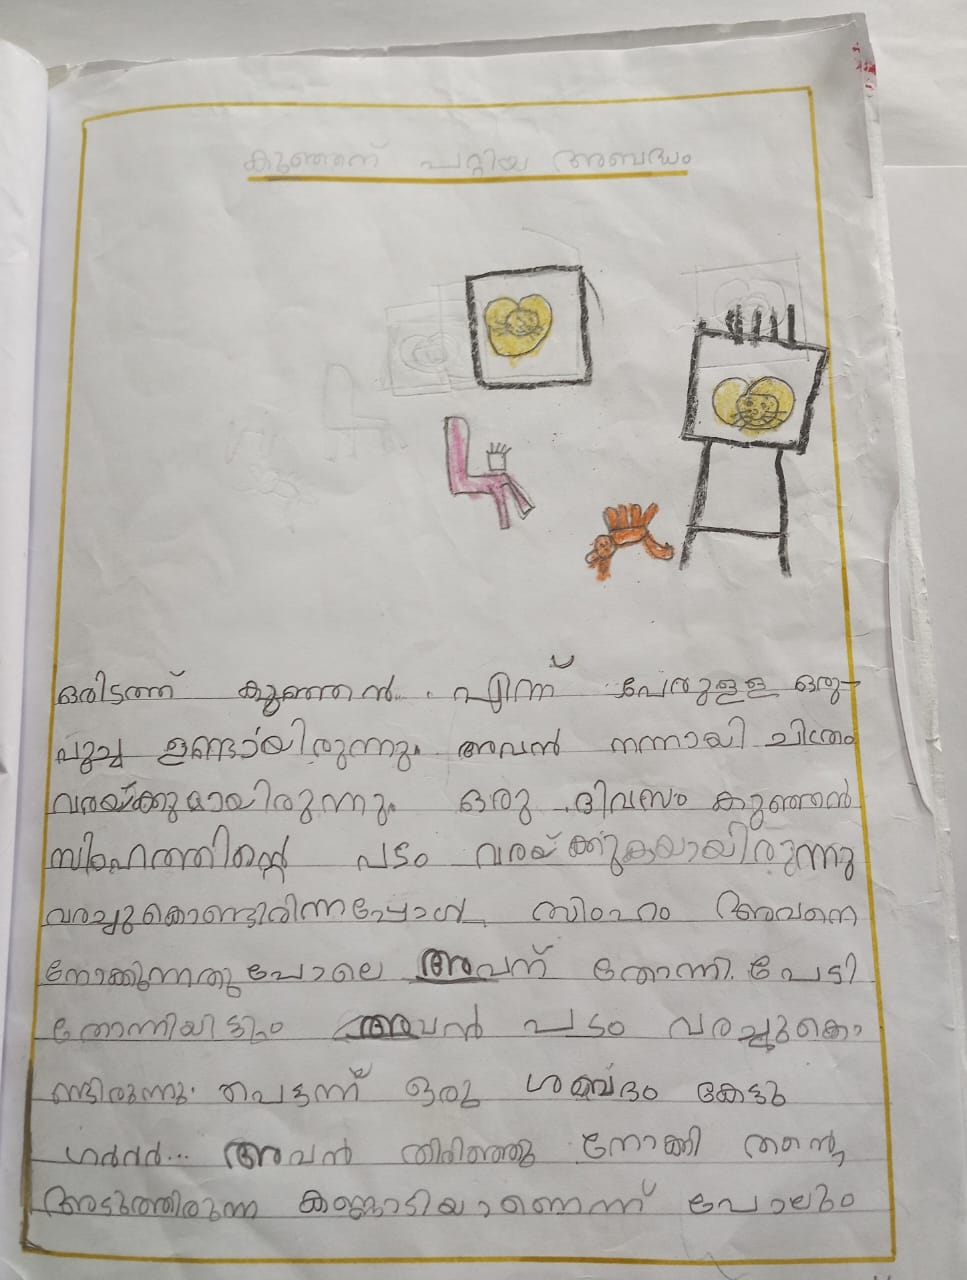 കുഞ്ഞന് പറ്റിയ അബദ്ധം
ഒരിടത്ത് കുഞ്ഞൻ. എന്ന് പേരുള്ള ഒരു
പൂച്ച ഉണ്ടായിരുന്നു. അവൻ നന്നായി ചിത്രം
വരയ്ക്കുമായിരുന്നു. ഒരു ദിവസം കുഞ്ഞൻ
സിംഹത്തിന്റെ പടം വരയ്ക്കുകയായിരുന്നു
വരച്ചുകൊണ്ടിരിന്നപ്പോൾ സിംഹം അവനെ
നോക്കുന്നതുപോലെ അവന് തോന്നി. പേടി
തോന്നിയിട്ടും അവൻ പടം വരച്ചുകൊ
ണ്ടിരുന്നു. പെട്ടന്ന് ഒരു ശബ്ദം കേട്ടു
ഗർർർ... അവൻ തിരിഞ്ഞു നോക്കി തന്റെ
അടുത്തിരുന്ന കണ്ണാടിയാണെന്ന് പോലും